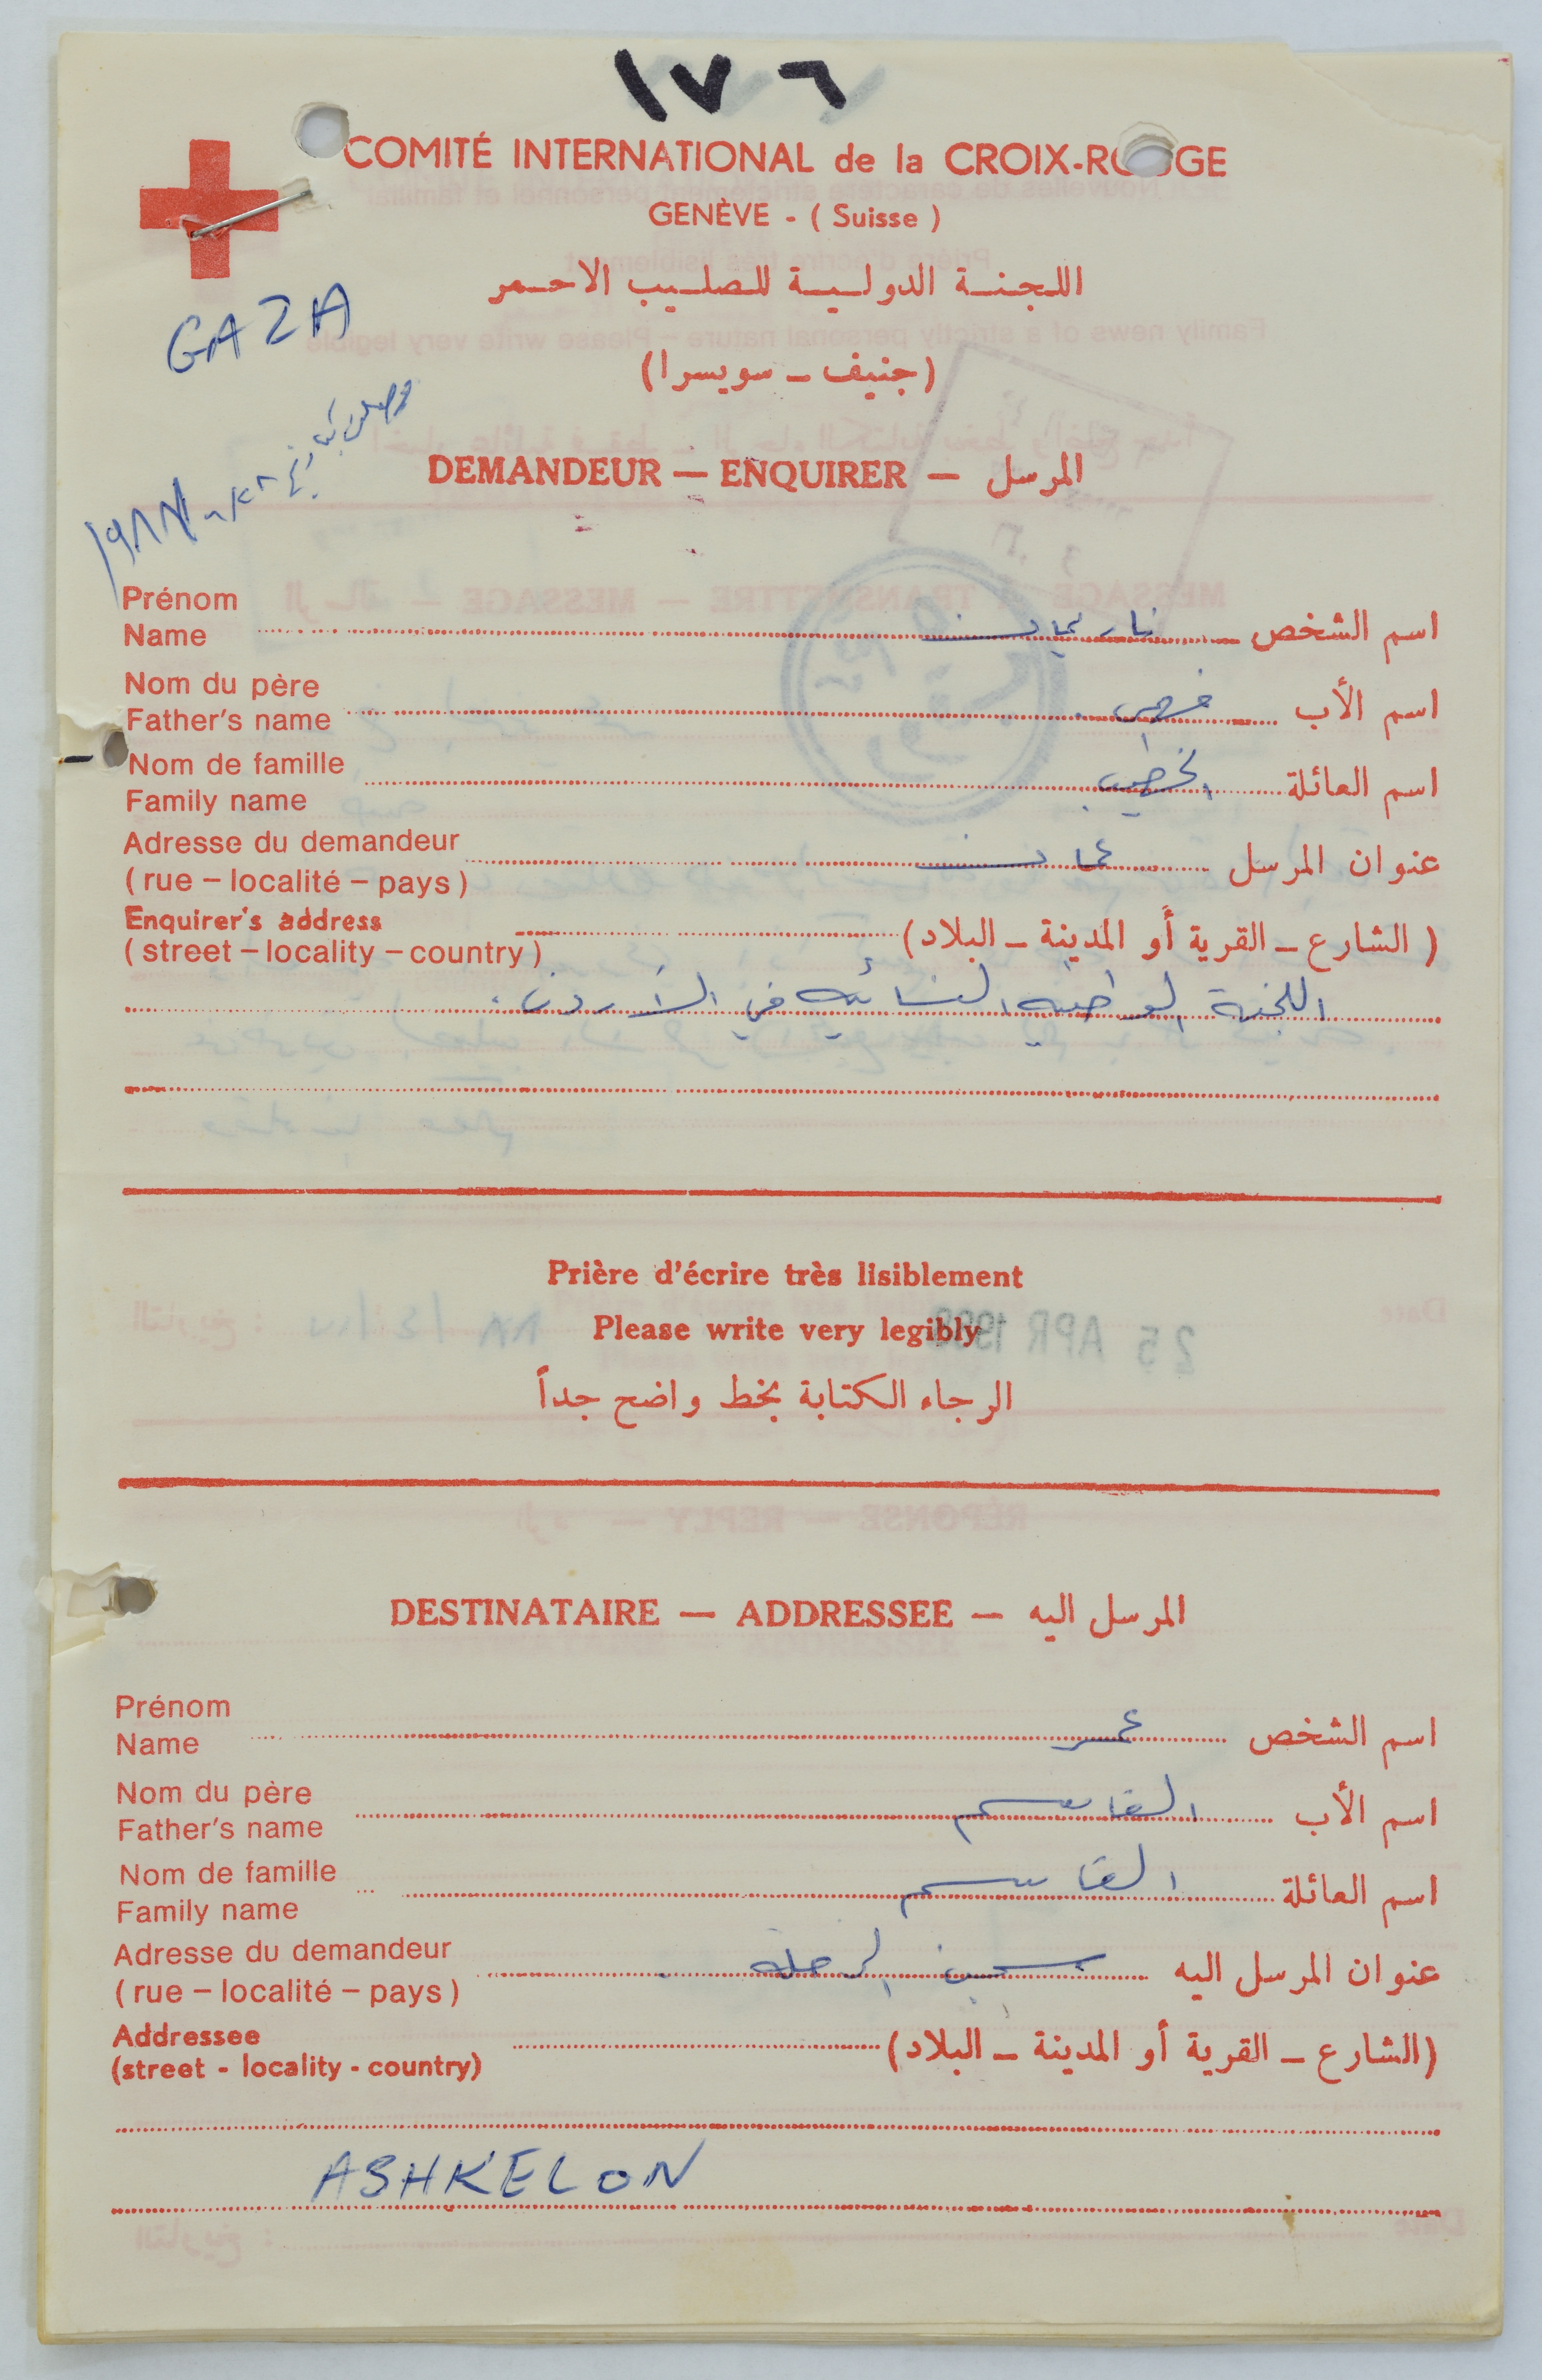 ١٧٦
COMITÉ INTERNATIONAL de la CROIX-ROUGE
GENÈVE - ( Suisse )
اللجنة الدولية للصليب الاحمر
(جنيف - سويسرا)
GAZA
DEMANDEUR — ENQUIRER — المرسل
Prénom
Name
اسم الشخص ناريمان
Nom du père
Father's name
اسم الأب
Nom de famille
Family name
اسم العائلة الخطيب
Adresse du demandeur
( rue – localité – pays )
عنوان المرسل عمان
Enquirer's address
( street – locality – country )
( الشارع - القرية أو المدينة - البلاد)
اللجنة النسائية في الأردن
Prière d'écrire très lisiblement
Please write very legibly
25 APR 1988
الرجاء الكتابة بخط واضح جداً
DESTINATAIRE — ADDRESSEE — المرسل اليه
Prénom
Name
اسم الشخص عمر
Nom du père
Father's name
اسم الأب القاسم
Nom de famille
Family name
اسم العائلة القاسم
Adresse du demandeur
( rue – localité – pays )
عنوان المرسل اليه سجن الرملة
Addressee
(street - locality - country)
(الشارع - القرية أو المدينة - البلاد)
ASHKELON